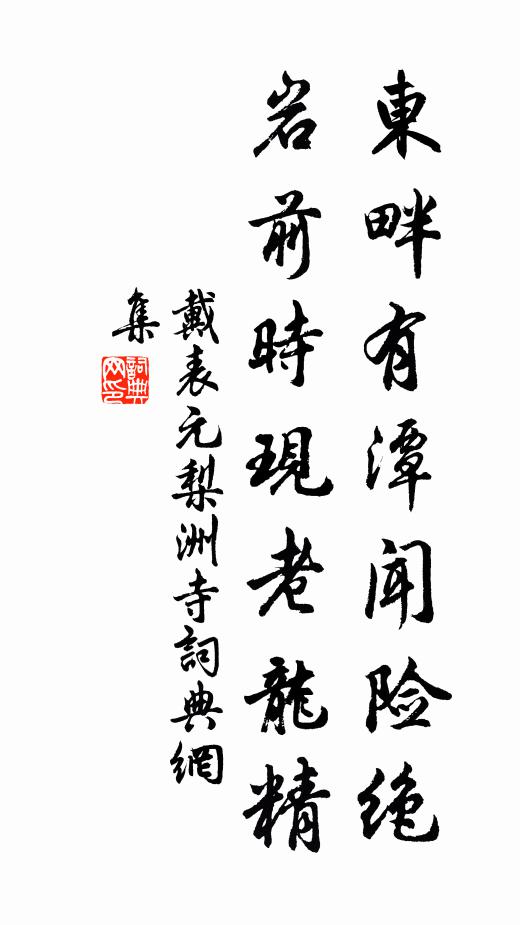 東畔有潭聞险绝
岩前時現老龍精
戴表元梨洲寺詞典網
集
詞典网印